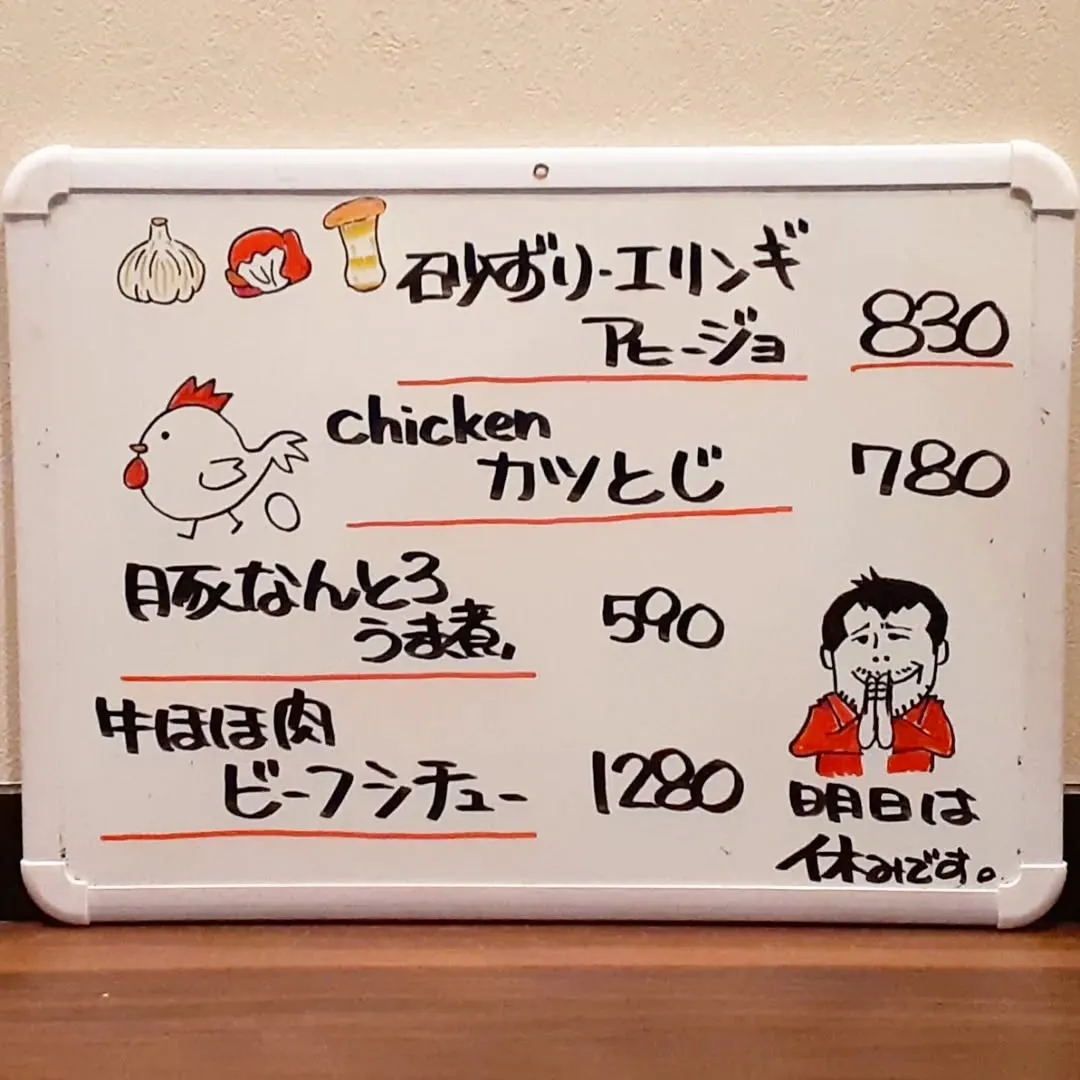 砂ずり-エリンギ
アヒージョ 830
chicken
カツとじ 780
豚なんとろ
うま煮, 590
牛ほほ肉
ビーフシチュー 1280
明日は
休みです。